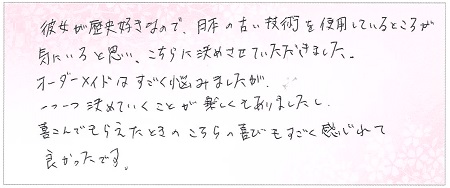 彼女が歴史好きなので、日本の古い技術を使用しているところが
気にいると思い、こちらに決めさせていただきました。
オーダーメイドはすごく悩みましたが、
一つ一つ決めていくことが楽しくもありましたし、
喜こんでもらえたときのこちらの喜びもすごく感じれて
良かったです。